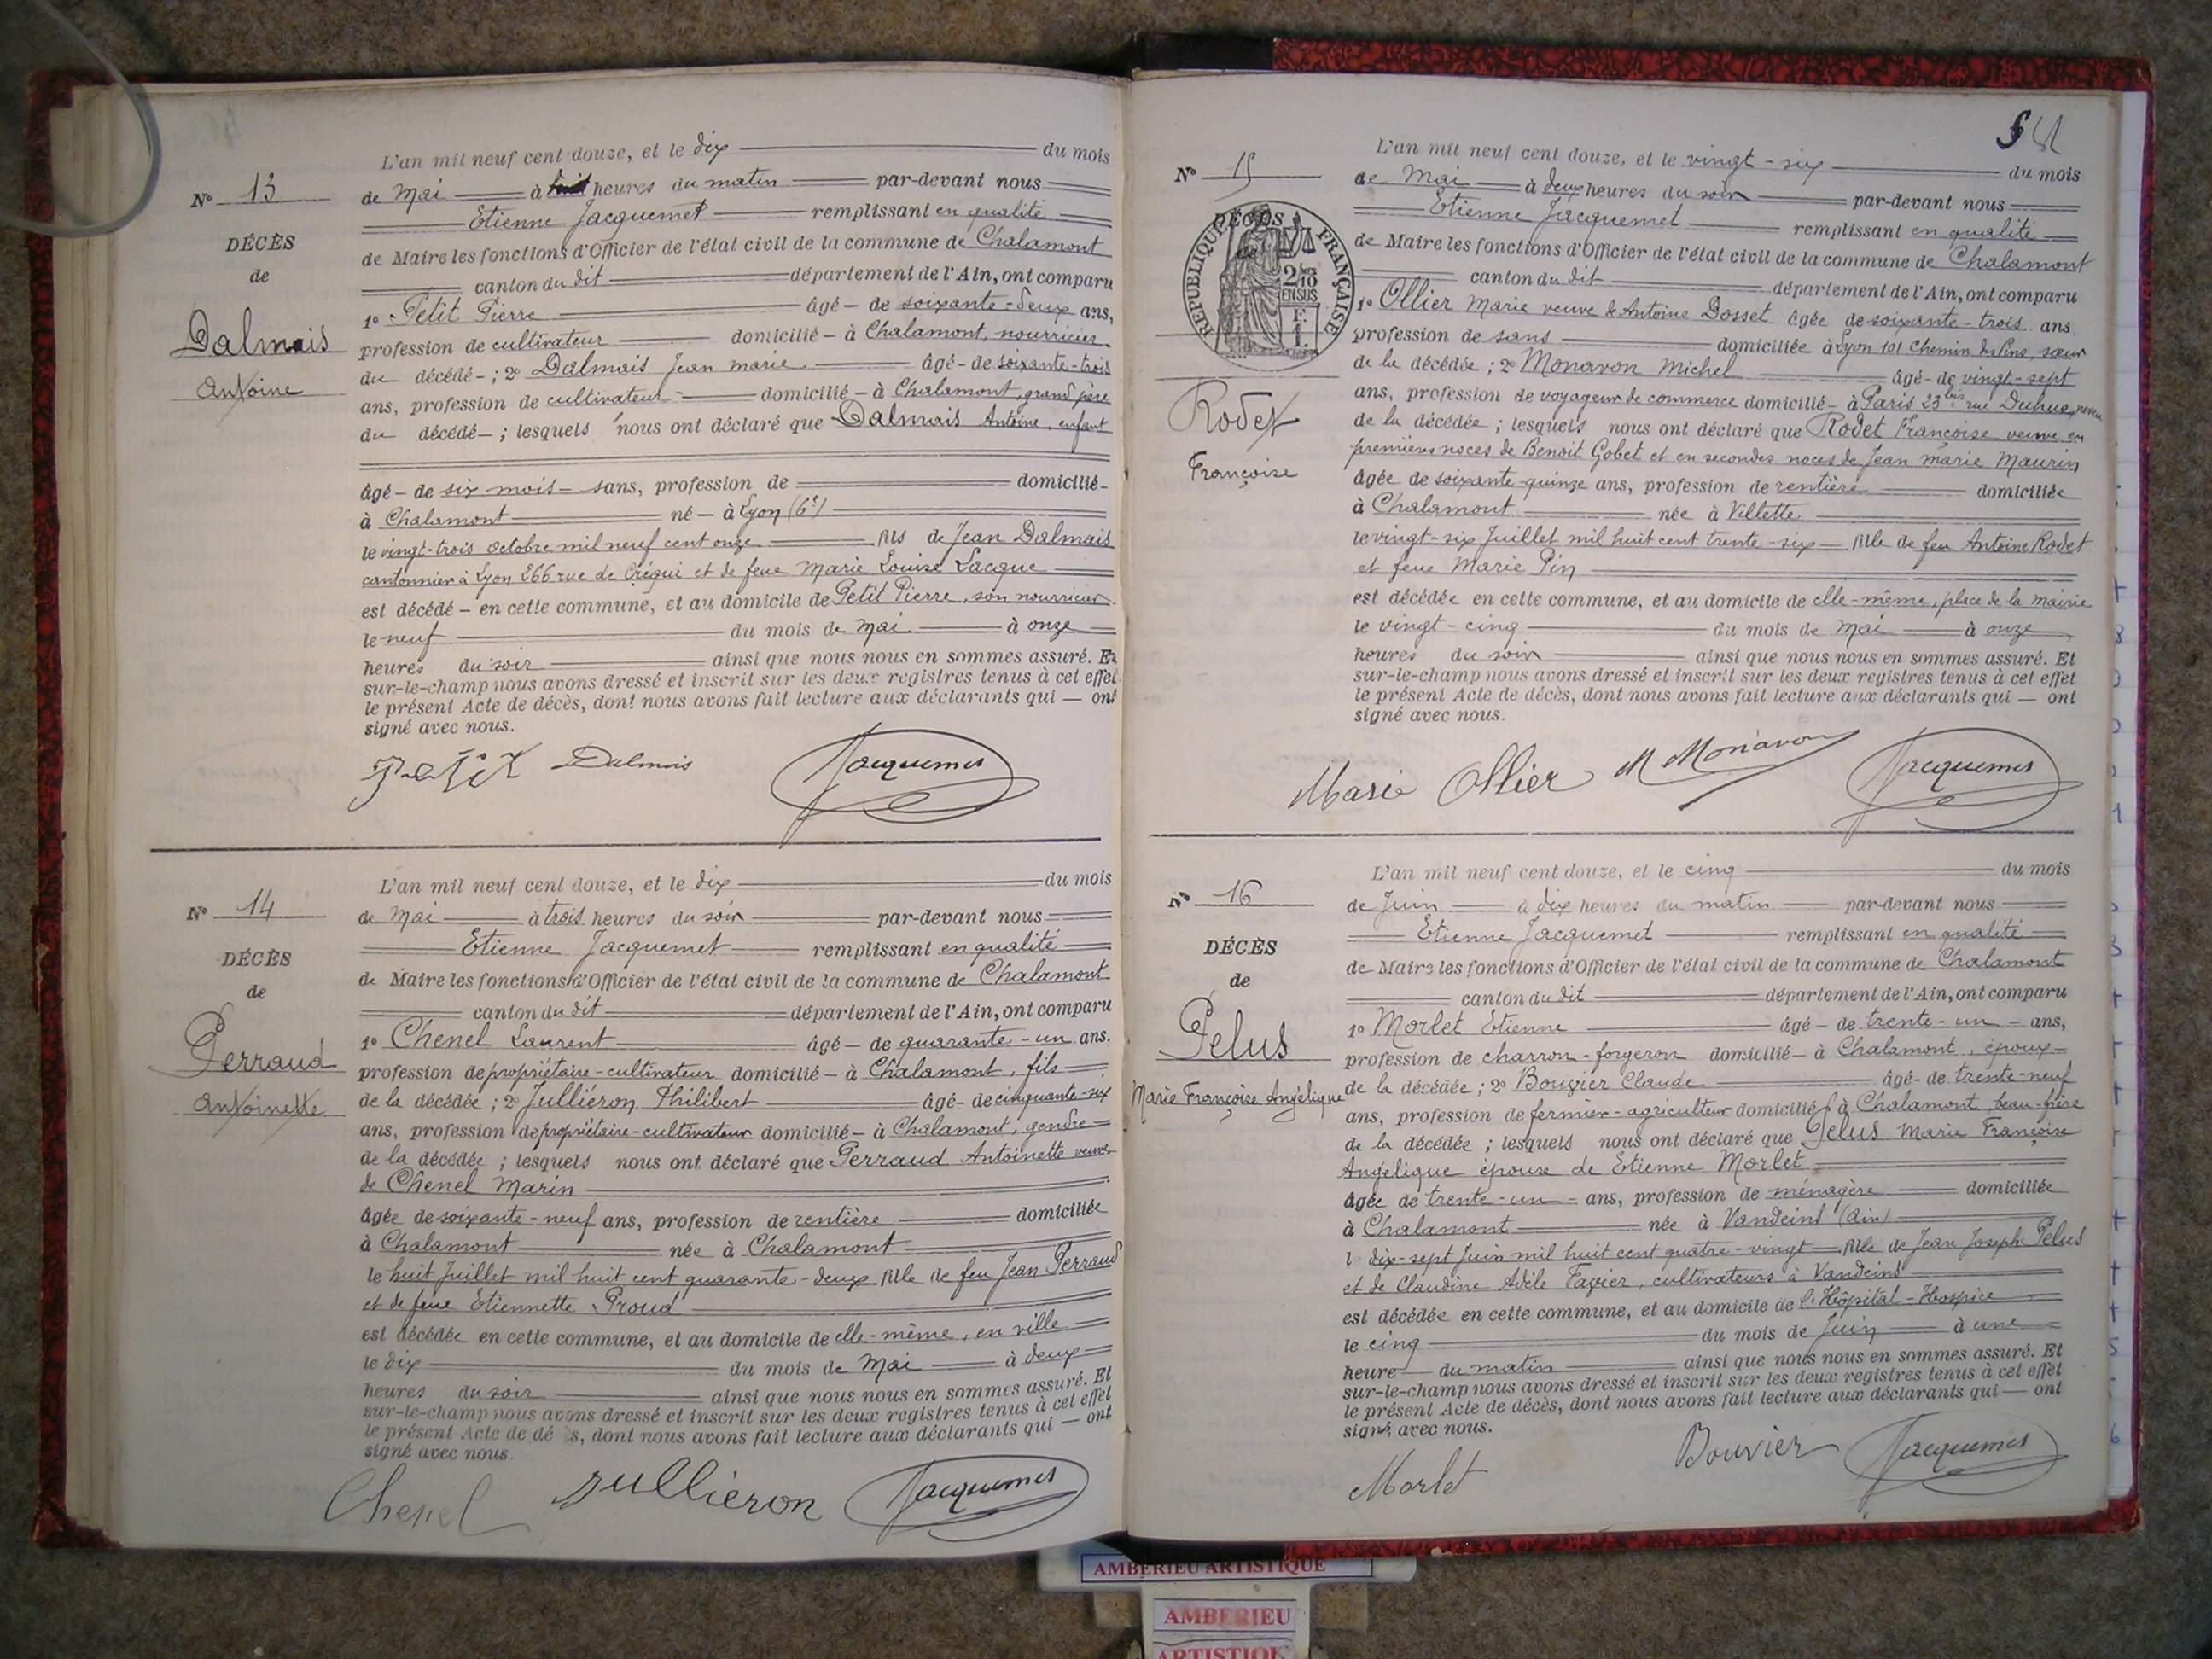 L'an mil neuf cent douze, et le dix du mois
Nº 13
de Mai à huit heures du matin par-devant nous
Etienne Jacquemet remplissant en qualité
DÉCÈS
de Maire les fonctions d'Officier de l'état civil de la commune de Chalamont
de
canton du dit département de l'Ain, ont comparu
1º Petit Pierre âgé de soixante-deux ans,
Dalmais
profession de cultivateur domicilié à Chalamont, nourricier
du décédé ; 2º Dalmais Jean marie âgé de soixante-trois
Antoine
ans, profession de cultivateur domicilié à Chalamont, grand père
du décédé ; lesquels nous ont déclaré que Dalmais Antoine, enfant
âgé de six mois sans, profession de domicilié
à Chalamont né à Lyon (6e)
le vingt-trois octobre mil neuf cent onze fils de Jean Dalmais
cantonnier à Lyon 266 rue de Créqui et de feue Marie Louise Lacque
est décédé en cette commune, et au domicile de Petit Pierre, son nourricier
le neuf du mois de Mai à onze
heures du soir ainsi que nous nous en sommes assuré. Et
sur-le-champ nous avons dressé et inscrit sur les deux registres tenus à cet effet
le présent Acte de décès, dont nous avons fait lecture aux déclarants qui — ont
signé avec nous.
Petit Dalmais Jacquemet
L'an mil neuf cent douze, et le dix du mois
Nº 14
de Mai à trois heures du soir par-devant nous
Etienne Jacquemet remplissant en qualité
DÉCÈS
de Maire les fonctions d'Officier de l'état civil de la commune de Chalamont
de
canton du dit département de l'Ain, ont comparu
1º Chenel Laurent âgé de quarante-un ans.
Perraud
profession de propriétaire-cultivateur domicilié à Chalamont, fils
de la décédée ; 2º Jullièron Philibert âgé de cinquante-six
Antoinette
ans, profession de propriétaire-cultivateur domicilié à Chalamont, gendre
de la décédée ; lesquels nous ont déclaré que Perraud Antoinette veuve
de Chenel Marin
âgée de soixante-neuf ans, profession de rentière domiciliée
à Chalamont née à Chalamont
le huit Juillet mil huit cent quarante-deux fille de feu Jean Perraud
et de feue Etiennette Proud
est décédée en cette commune, et au domicile de elle-même, en ville
le dix du mois de Mai à deux
heures du soir ainsi que nous nous en sommes assuré. Et
sur-le-champ nous avons dressé et inscrit sur les deux registres tenus à cet effet
le présent Acte de dé s, dont nous avons fait lecture aux déclarants qui — ont
signé avec nous.
Chenel Jullieron Jacquemet
L'an mil neuf cent douze, et le vingt-six du mois
Nº 15
de Mai à deux heures du soir par-devant nous
Etienne Jacquemet remplissant en qualité
DÉCÈS
RÉPUBLIQUE FRANÇAISE
de Maire les fonctions d'Officier de l'état civil de la commune de Chalamont
de
canton du dit département de l'Ain, ont comparu
2/10 EN SUS
F. 1.
1º Ollier Marie veuve de Antoine Dosset âgée de soixante-trois ans
profession de sans domiciliée à Lyon 101 Chemin des Pins, sœur
de la décédée ; 2º Monavon Michel âgé de vingt-sept
Rodet
ans, profession de voyageur de commerce domicilié à Paris 23 bis rue Duhus, neveu
de la décédée ; lesquels nous ont déclaré que Rodet Françoise veuve en
Françoise
premières noces de Benoit Gobet et en secondes noces de Jean marie Maurin
âgée de soixante-quinze ans, profession de rentière domiciliée
à Chalamont née à Villette
le vingt-six Juillet mil huit cent trente-six fille de feu Antoine Rodet
et feue Marie Pin
est décédée en cette commune, et au domicile de elle-même, place de la mairie
le vingt-cinq du mois de Mai à onze
heures du soir ainsi que nous nous en sommes assuré. Et
sur-le-champ nous avons dressé et inscrit sur les deux registres tenus à cet effet
le présent Acte de décès, dont nous avons fait lecture aux déclarants qui — ont
signé avec nous.
Marie Ollier M Monavon Jacquemet
L'an mil neuf cent douze, et le cinq du mois
Nº 16
de Juin à dix heures du matin par-devant nous
Etienne Jacquemet remplissant en qualité
DÉCÈS
de Maire les fonctions d'Officier de l'état civil de la commune de Chalamont
de
canton du dit département de l'Ain, ont comparu
1º Morlet Etienne âgé de trente-un ans,
Pelus
profession de charron-forgeron domicilié à Chalamont, époux
Marie Françoise Angélique
de la décédée ; 2º Bouvier Claude âgé de trente-neuf
ans, profession de fermier-agriculteur domicilié à Chalamont, beau-frère
de la décédée ; lesquels nous ont déclaré que Pelus Marie Françoise
Angélique épouse de Etienne Morlet
âgée de trente-un ans, profession de ménagère domiciliée
à Chalamont née à Vandeins (Ain)
l dix-sept Juin mil huit cent quatre-vingt fille de Jean Joseph Pelus
et de Claudine Adèle Favier, cultivateurs à Vandeins
est décédée en cette commune, et au domicile de l'Hôpital-Hospice
le cinq du mois de Juin à une
heure du matin ainsi que nous nous en sommes assuré. Et
sur-le-champ nous avons dressé et inscrit sur les deux registres tenus à cet effet
le présent Acte de décès, dont nous avons fait lecture aux déclarants qui — ont
signé avec nous.
Morlet Bouvier Jacquemet
AMBERIEU ARTISTIQUE
AMBERIEU
ARTISTIQUE